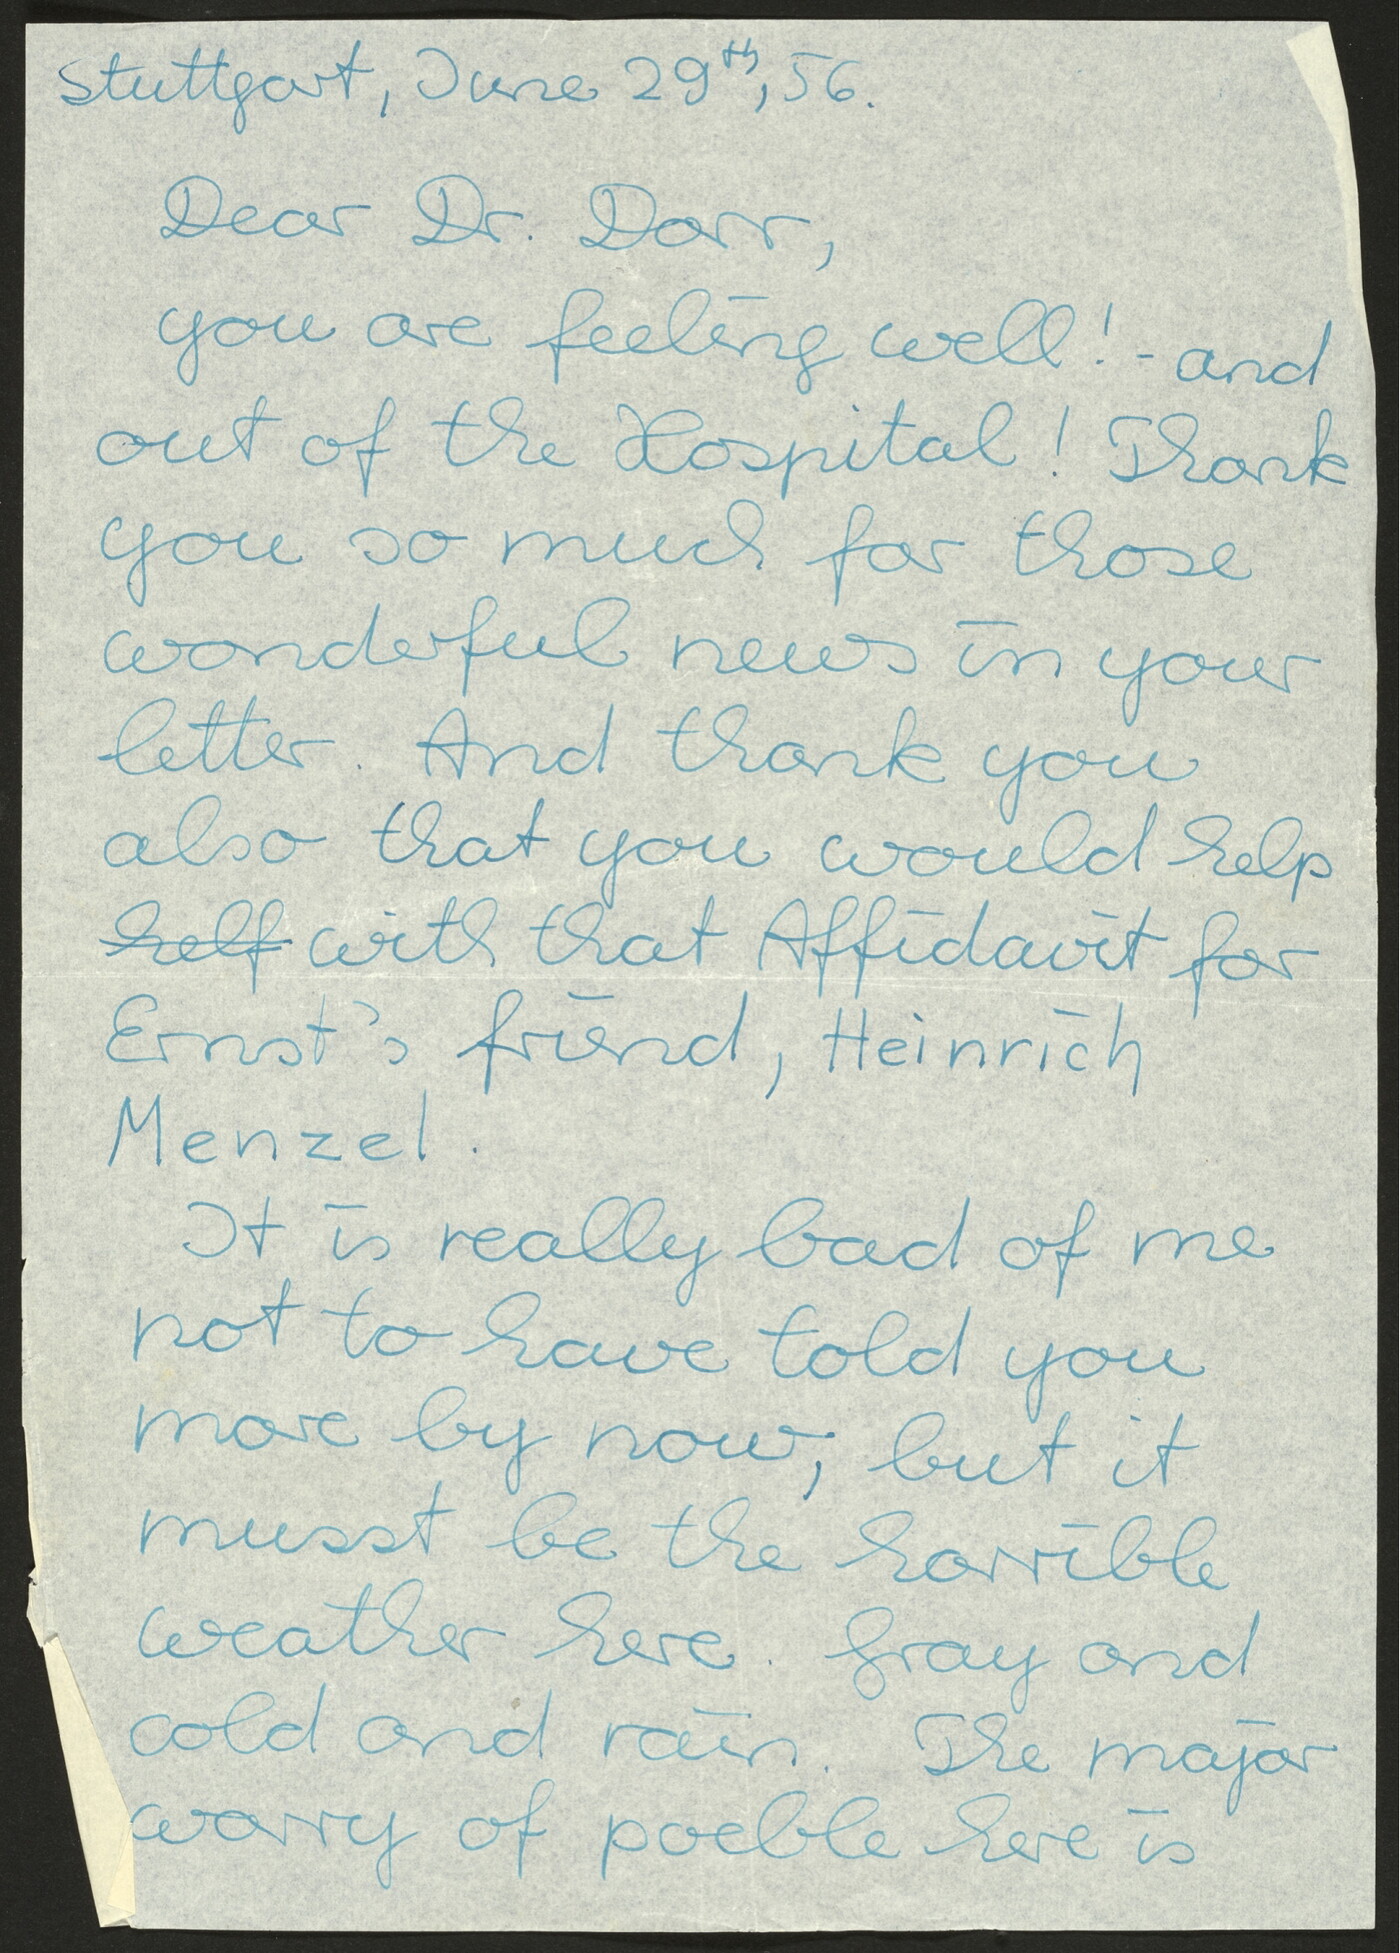 Stuttgart, June 29th, 56.
Dear Dr. Dorr,
you are feeling well! - and
out of the Hospital! Thank
you so much for those
wonderful news in your
letter. And thank you
also that you would help
helf with that Affidavit for
Ernst's friend, Heinrich
Menzel.
It is really bad of me
not to have told you
more by now, but it
musst be the horrible
weather here. Gray and
cold and rain. The major
worry of poeble here is